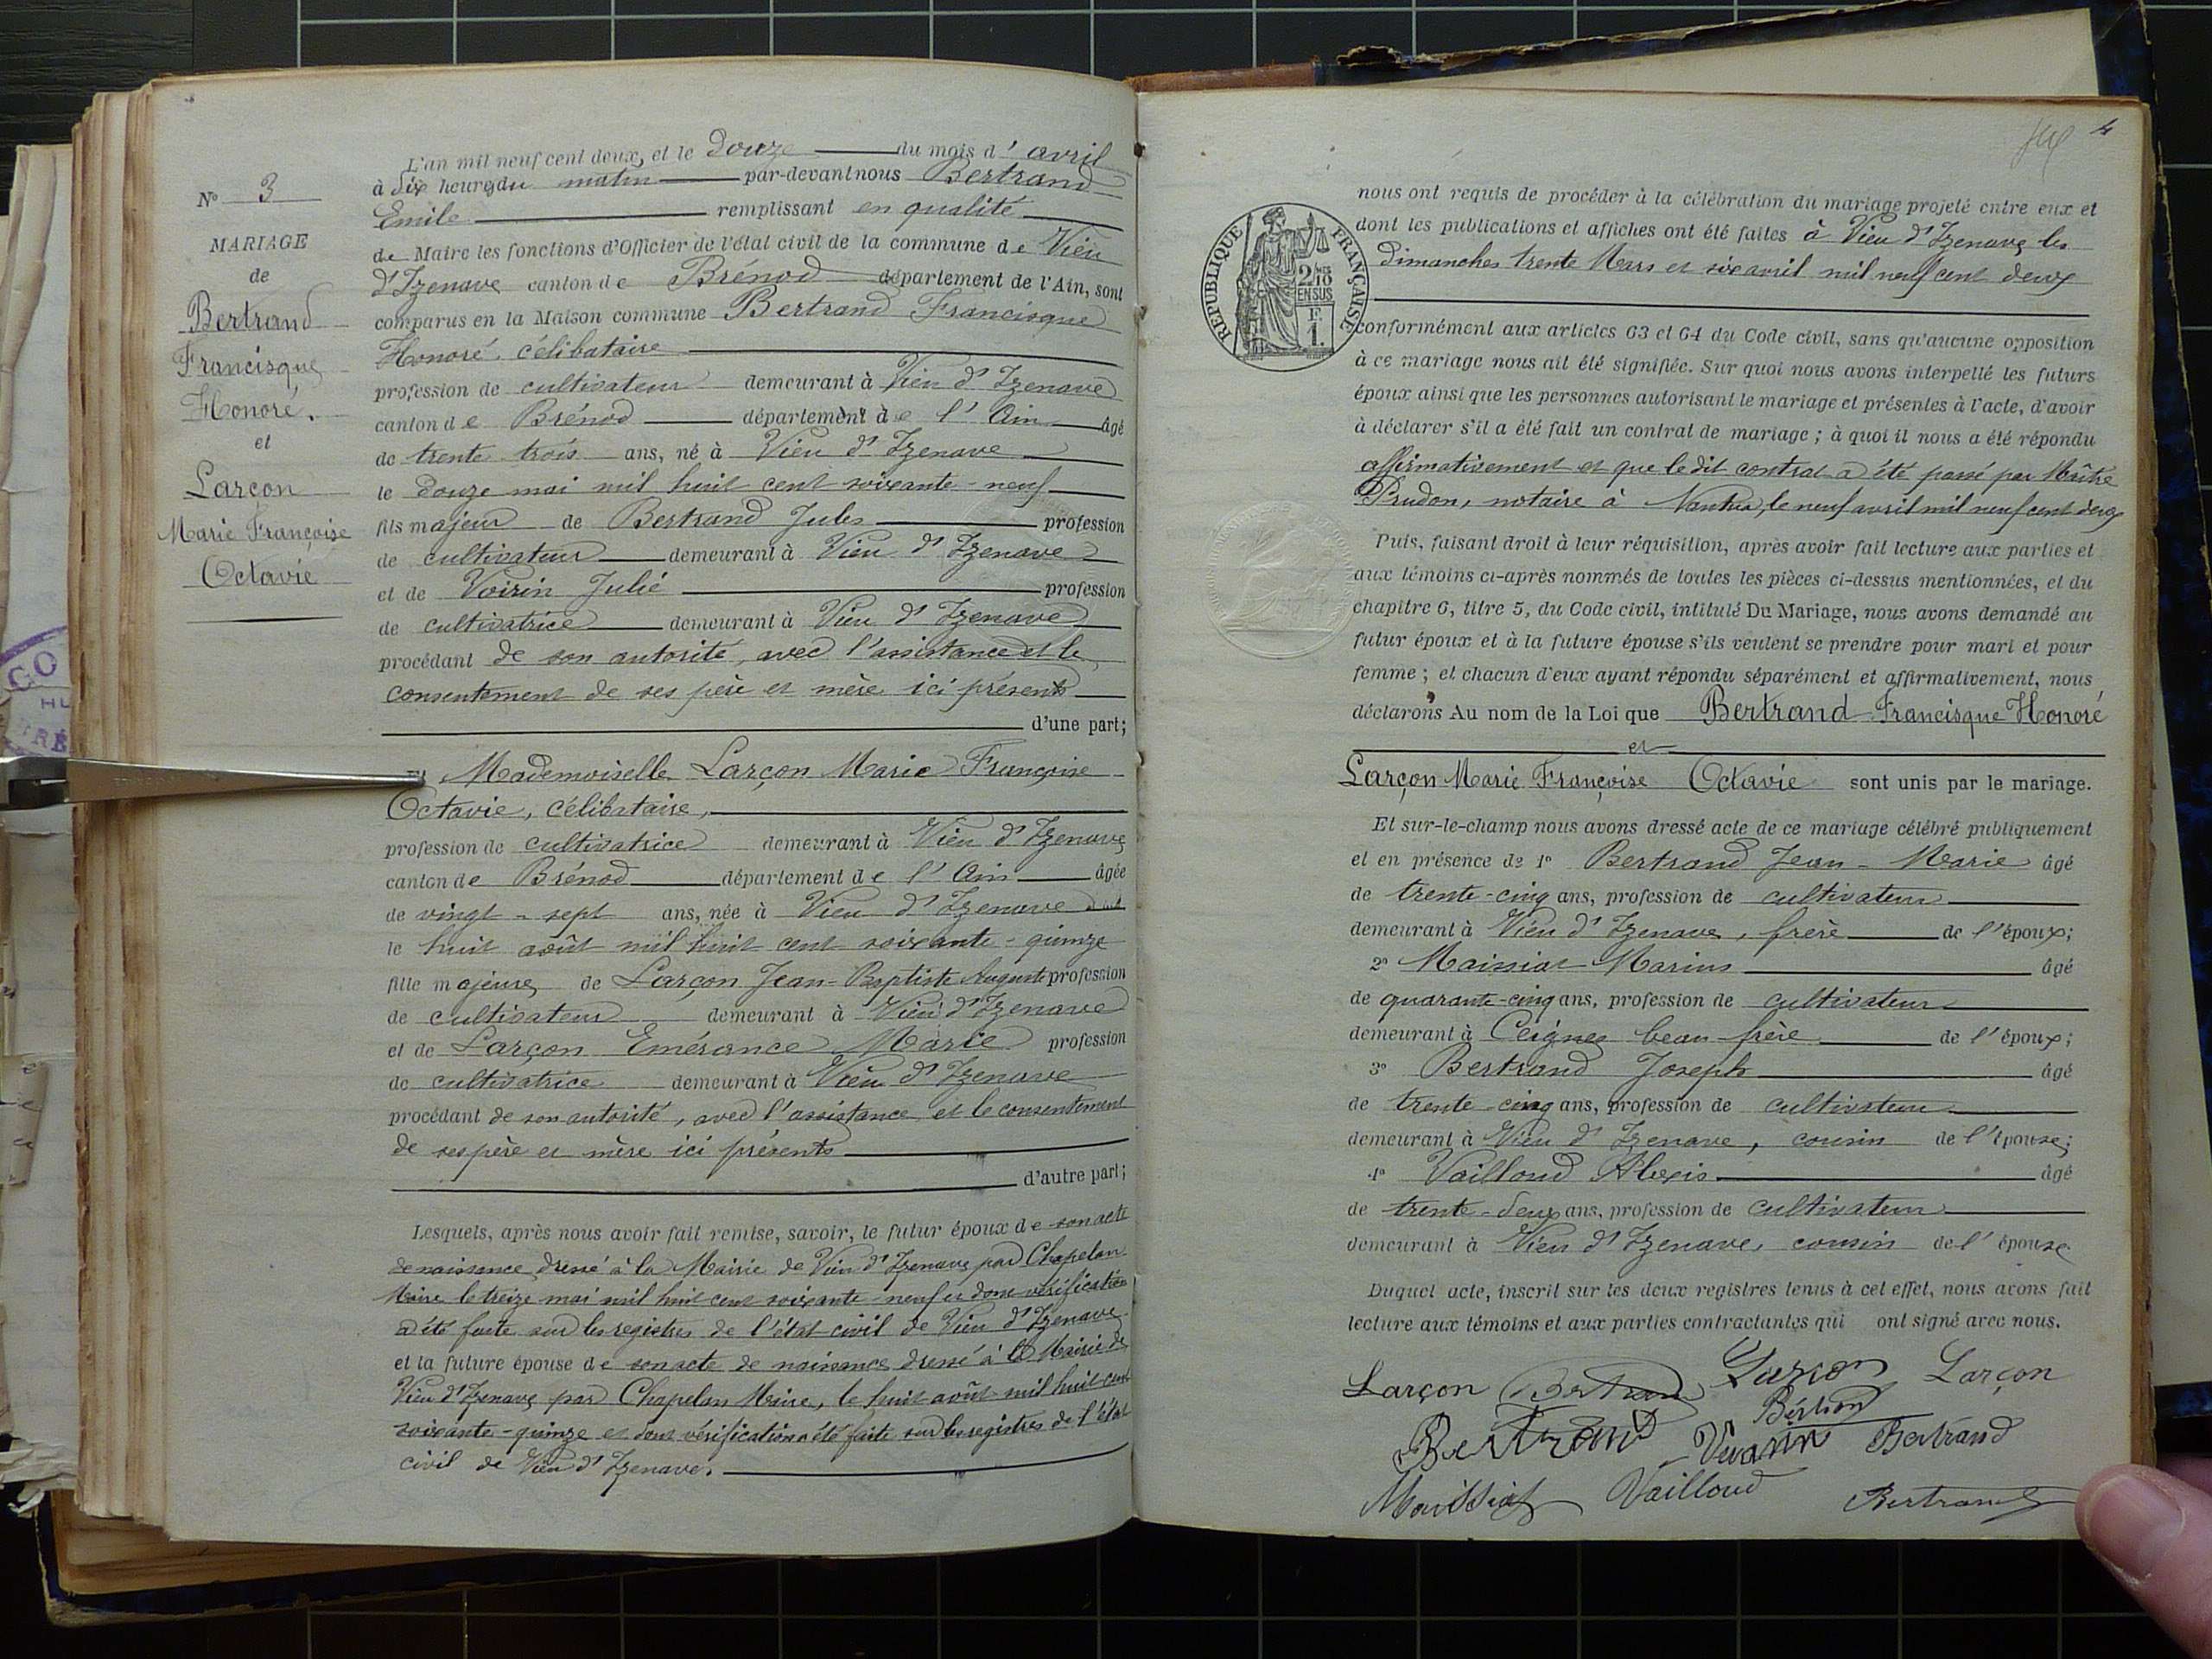 N° 3
MARIAGE
de
Bertrand
Francisque
Honoré.
et
Larçon
Marie Françoise
Octavie
L'an mil neuf cent deux, et le Douze du mois d' avril
à dix heures du matin par-devant nous Bertrand
Emile remplissant en qualité
de Maire les fonctions d'Officier de l'état civil de la commune de Vieu
d'Izenave canton de Brénod département de l'Ain, sont
comparus en la Maison commune Bertrand Francisque
Honoré, célibataire
profession de cultivateur demeurant à Vieu d'Izenave
canton de Brénod département de l'Ain âgé
de trente trois ans, né à Vieu d'Izenave
le douze mai mil huit cent soixante-neuf
fils majeur de Bertrand Jules profession
de cultivateur demeurant à Vieu d'Izenave
et de Voirin Julie profession
de cultivatrice demeurant à Vieu d'Izenave
procédant de son autorité, avec l'assistance et le
consentement de ses père et mère ici présents
d'une part;
Mademoiselle Larçon Marie Françoise
Octavie, célibataire,
profession de cultivatrice demeurant à Vieu d'Izenave
canton de Brénod département de l'Ain âgée
de vingt-sept ans, née à Vieu d'Izenave
le huit août mil huit cent soixante-quinze
fille majeure de Larçon Jean-Baptiste Auguste profession
de cultivateur demeurant à Vieu d'Izenave
et de Larçon Emérance Marie profession
de cultivatrice demeurant à Vieu d'Izenave
procédant de son autorité, avec l'assistance et le consentement
de ses père et mère ici présents
d'autre part;
Lesquels, après nous avoir fait remise, savoir, le futur époux de son acte
de naissance dressé à la Mairie de Vieu d'Izenave par Chapelan
Maire le treize mai mil huit cent soixante-neuf et dont vérification
a été faite sur les registres de l'état civil de Vieu d'Izenave
et la future épouse de son acte de naissance dressé à la Mairie de
Vieu d'Izenave par Chapelan Maire, le huit août mil huit cent
soixante-quinze et dont vérification a été faite sur les registres de l'état
civil de Vieu d'Izenave.
4
RÉPUBLIQUE FRANÇAISE
2/10 EN SUS
F. 1.
nous ont requis de procéder à la célébration du mariage projeté entre eux et
dont les publications et affiches ont été faites à Vieu d'Izenave les
dimanches trente Mars et six avril mil neuf cent deux
conformément aux articles 63 et 64 du Code civil, sans qu'aucune opposition
à ce mariage nous ait été signifiée. Sur quoi nous avons interpellé les futurs
époux ainsi que les personnes autorisant le mariage et présentes à l'acte, d'avoir
à déclarer s'il a été fait un contrat de mariage ; à quoi il nous a été répondu
affirmativement et que le dit contrat a été passé par Maître
Prudon, notaire à Nantua, le neuf avril mil neuf cent deux
Puis, faisant droit à leur réquisition, après avoir fait lecture aux parties et
aux témoins ci-après nommés de toutes les pièces ci-dessus mentionnées, et du
chapitre 6, titre 5, du Code civil, intitulé Du Mariage, nous avons demandé au
futur époux et à la future épouse s'ils veulent se prendre pour mari et pour
femme ; et chacun d'eux ayant répondu séparément et affirmativement, nous
déclarons Au nom de la Loi que Bertrand Francisque Honoré
et
Larçon Marie Françoise Octavie sont unis par le mariage.
Et sur-le-champ nous avons dressé acte de ce mariage célébré publiquement
et en présence de 1° Bertrand Jean-Marie âgé
de trente-cinq ans, profession de cultivateur
demeurant à Vieu d'Izenave, frère de l'époux;
2° Maissiat Marius âgé
de quarante-cinq ans, profession de cultivateur
demeurant à Ceignes beau-frère de l'époux;
3° Bertrand Joseph âgé
de trente cinq ans, profession de cultivateur
demeurant à Vieu d'Izenave, cousin de l'épouse;
4° Vailloud Alexis âgé
de trente-deux ans, profession de cultivateur
demeurant à Vieu d'Izenave, cousin de l'épouse
Duquel acte, inscrit sur les deux registres tenus à cet effet, nous avons fait
lecture aux témoins et aux parties contractantes qui ont signé avec nous.
Larçon Bertrand Larçon Larçon
Bertrand
Bertrand Bertrand
Maissiat Vailloud Bertrand